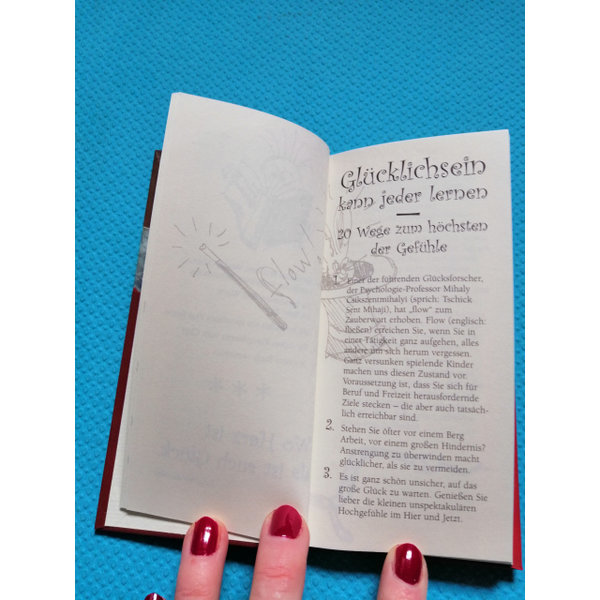 flow!
Glücklichsein
kann jeder lernen
20 Wege zum höchsten
der Gefühle
1. Einer der führenden Glücksforscher,
der Psychologie-Professor Mihaly
Csikszentmihalyi (sprich: Tschick
Sent Mihaji), hat „flow“ zum
Zauberwort erhoben. Flow (englisch:
fließen) erreichen Sie, wenn Sie in
einer Tätigkeit ganz aufgehen, alles
andere um sich herum vergessen.
Ganz versunken spielende Kinder
machen uns diesen Zustand vor.
Voraussetzung ist, dass Sie sich für
Beruf und Freizeit herausfordernde
Ziele stecken – die aber auch tatsäch-
lich erreichbar sind.
2. Stehen Sie öfter vor einem Berg
Arbeit, vor einem großen Hindernis?
Anstrengung zu überwinden macht
glücklicher, als sie zu vermeiden.
3. Es ist ganz schön unsicher, auf das
große Glück zu warten. Genießen Sie
lieber die kleinen unspektakulären
Hochgefühle im Hier und Jetzt.